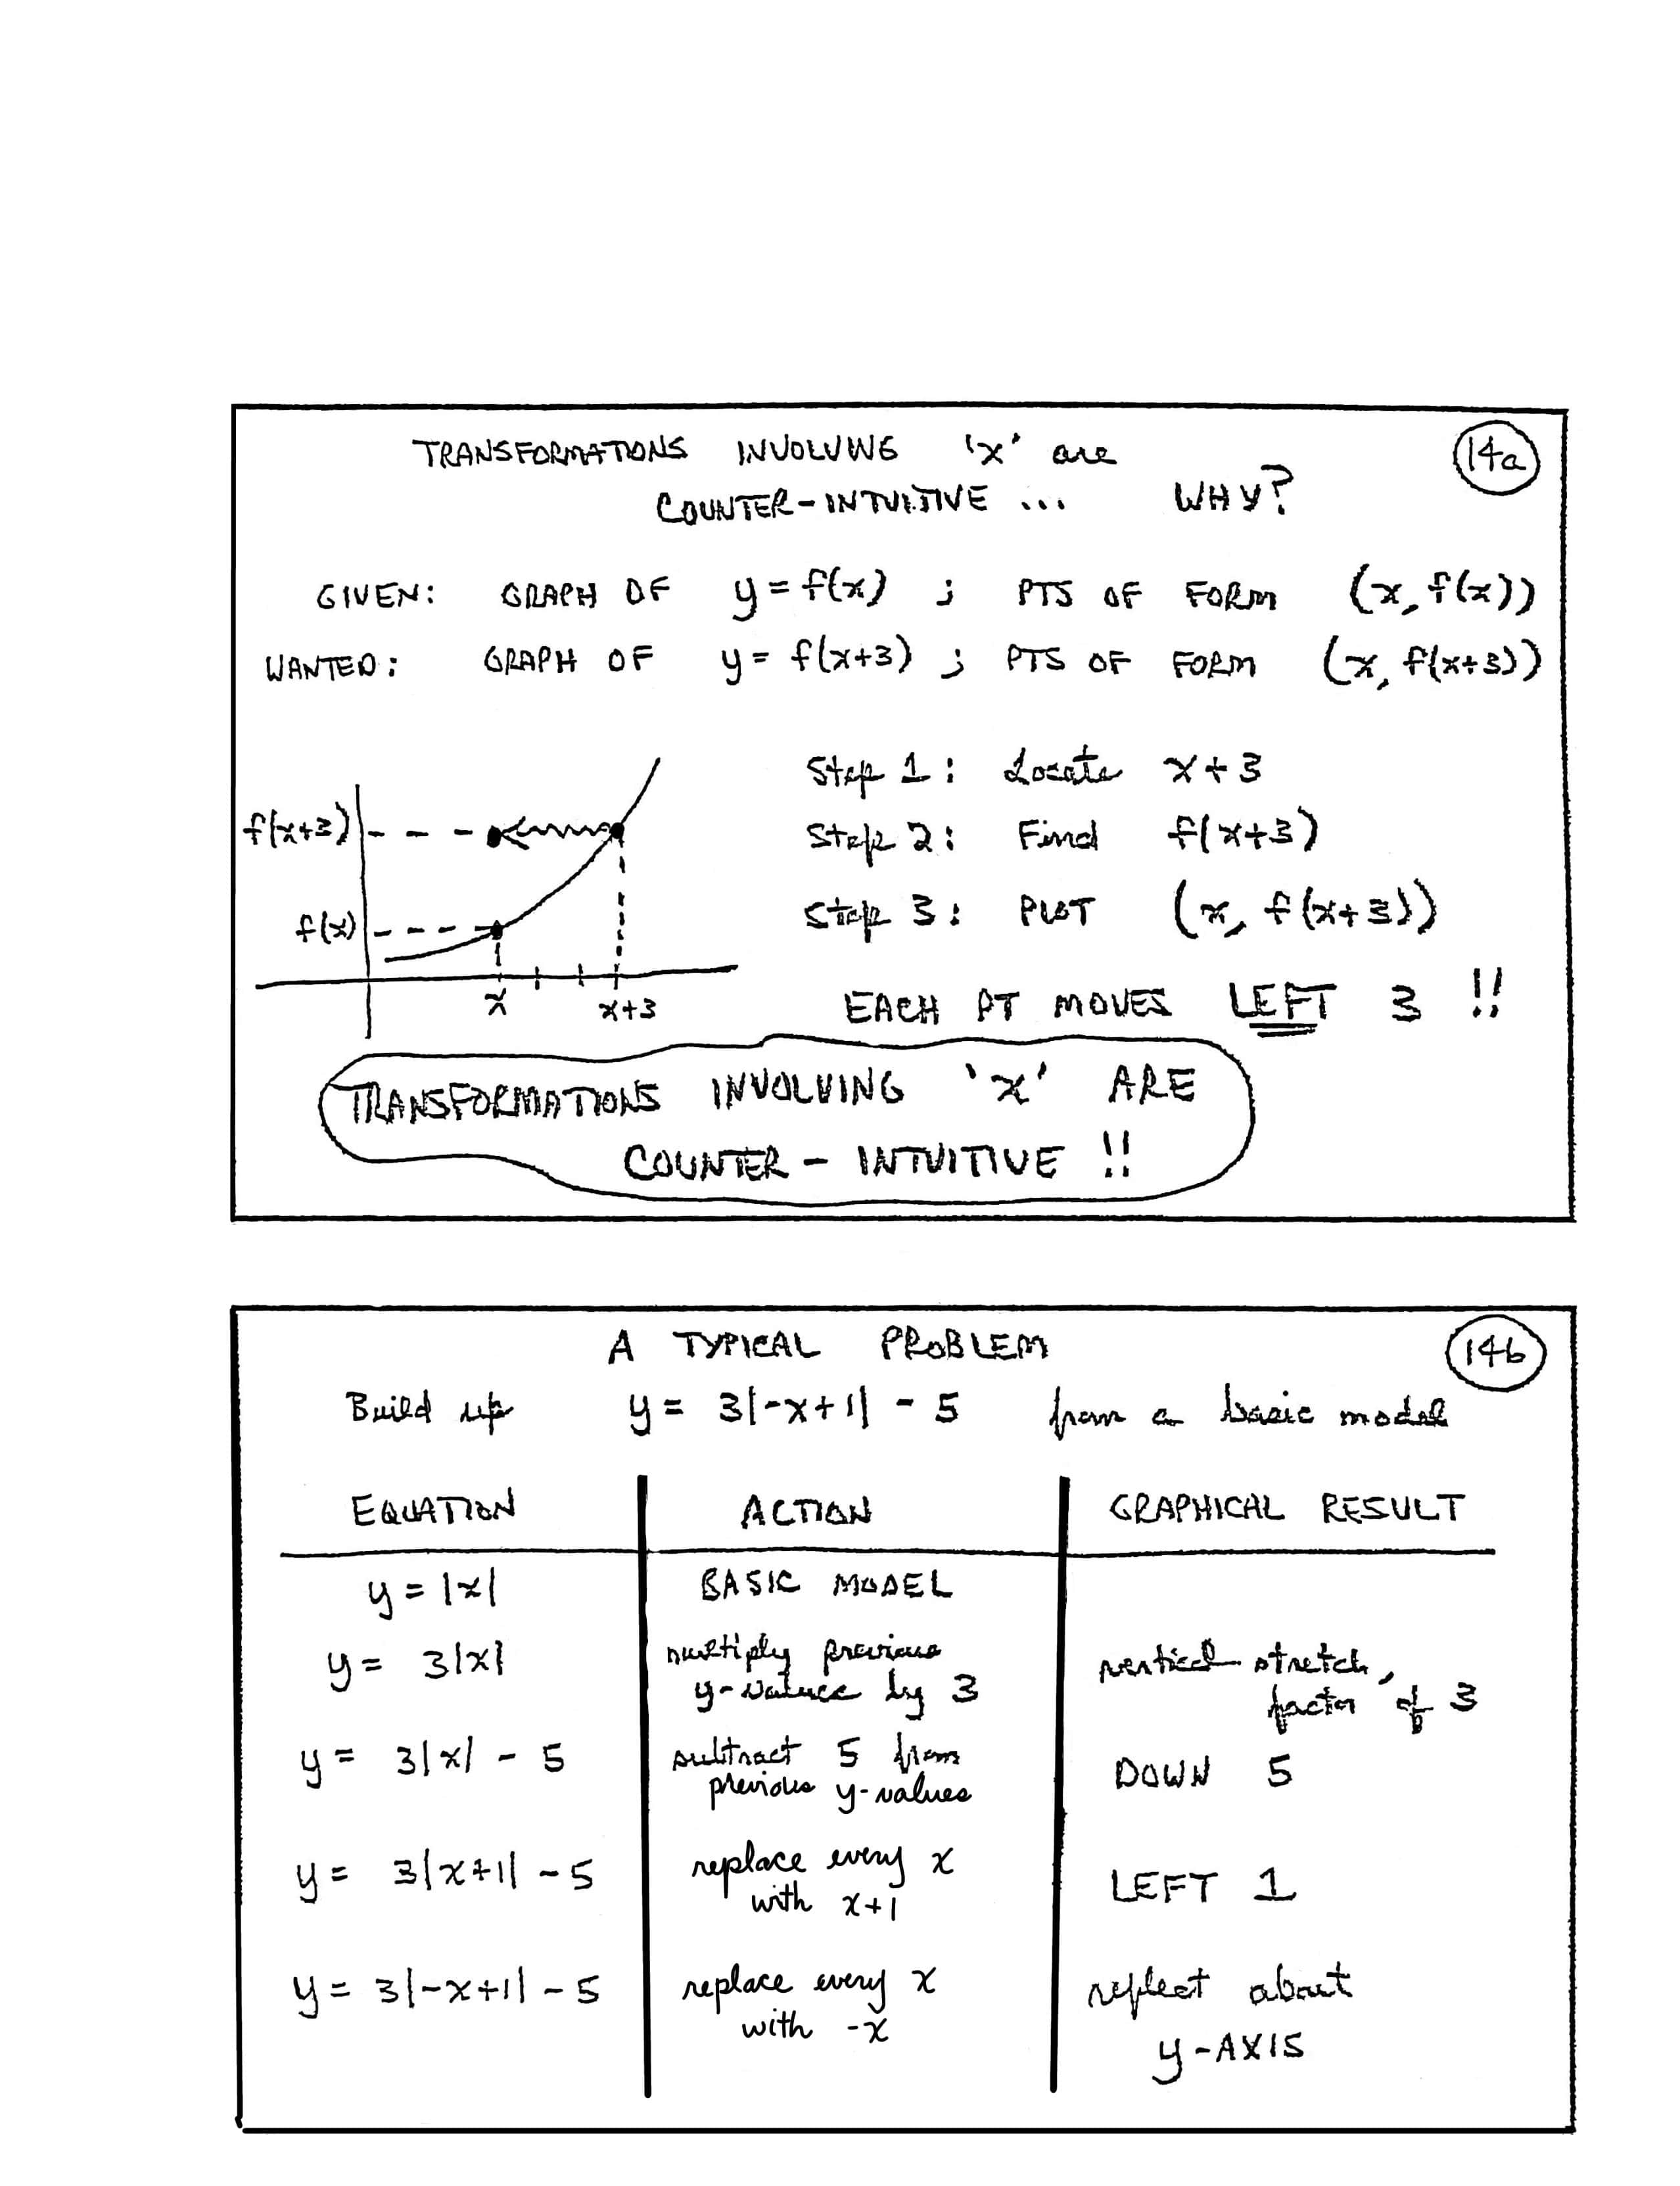 TRANSFORMATIONS INVOLVING 'x' are
14a
COUNTER-INTUITIVE ... WHY?
GIVEN: GRAPH OF y = f(x) ; PTS OF FORM (x, f(x))
WANTED: GRAPH OF y = f(x+3) ; PTS OF FORM (x, f(x+3))
f(x+3)
f(x)
x
x+3
Step 1: Locate x+3
Step 2: Find f(x+3)
Step 3: PLOT (x, f(x+3))
EACH PT MOVES LEFT 3 !!
TRANSFORMATIONS INVOLVING 'x' ARE
COUNTER - INTUITIVE !!
A TYPICAL PROBLEM
14b
Build up y = 3|-x+1| - 5 from a basic model
EQUATION ACTION GRAPHICAL RESULT
y = |x| BASIC MODEL
y = 3|x| multiply previous
y-values by 3
vertical stretch,
factor of 3
y = 3|x| - 5 subtract 5 from
previous y-values
DOWN 5
y = 3|x+1| - 5 replace every x
with x+1
LEFT 1
y = 3|-x+1| - 5 replace every x
with -x
reflect about
y-AXIS